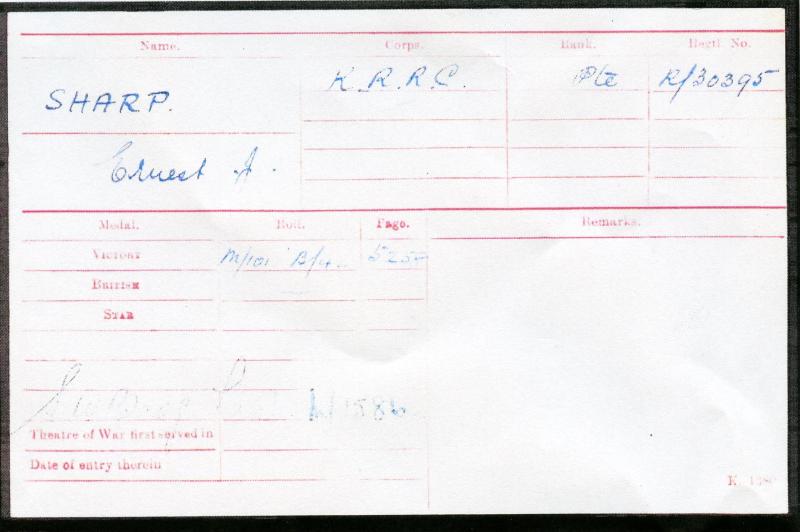 Name. Corps. Rank. Regtl. No.
SHARP. K.R.R.C. Pte R/30395
Ernest J.
Medal. Roll. Page. Remarks.
VICTORY M/101 B4
BRITISH
STAR
Theatre of War first served in
Date of entry therein
K. 1380